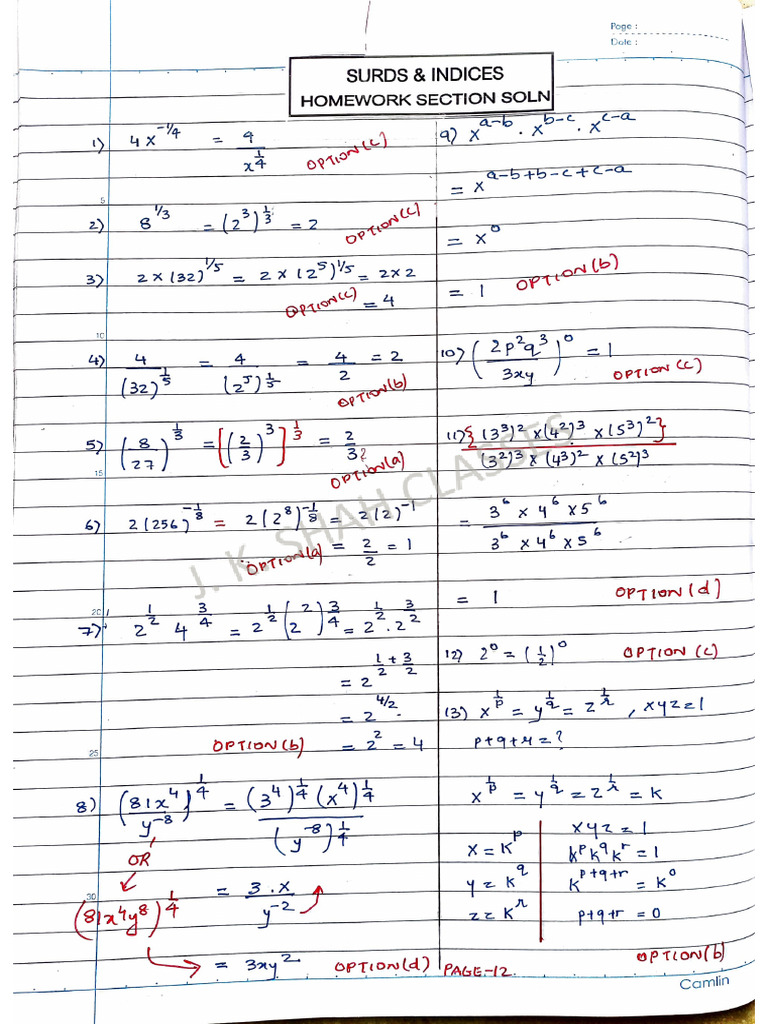 Page :
Date :
SURDS & INDICES
HOMEWORK SECTION SOLN
1) 4x^{-1/4} = 4/x^{1/4} OPTION(c)
2) 8^{1/3} = (2^3)^{1/3} = 2 OPTION(c)
3) 2×(32)^{1/5} = 2×(2^5)^{1/5} = 2×2
= 4 OPTION(c)
4) 4/(32)^{1/5} = 4/(2^5)^{1/5} = 4/2 = 2
OPTION(b)
5) (8/27)^{1/3} = [(2/3)^3]^{1/3} = 2/3
OPTION(a)
6) 2(256)^{-1/8} = 2(2^8)^{-1/8} = 2(2)^{-1}
OPTION(a) = 2/2 = 1
7) 2^{1/2} 4^{3/4} = 2^{1/2}(2^2)^{3/4} = 2^{1/2}·2^{3/2}
= 2^{1/2+3/2}
= 2^{4/2}
OPTION(b) = 2^2 = 4
8) (81x^4/y^{-8})^{1/4} = (3^4)^{1/4}(x^4)^{1/4}/(y^{-8})^{1/4}
OR
(81x^4y^8)^{1/4} = 3·x/y^{-2}
= 3xy^2 OPTION(d)
9) x^{a-b} · x^{b-c} · x^{c-a}
= x^{a-b+b-c+c-a}
= x^0
= 1 OPTION(b)
10) (2p^2q^3/3xy)^0 = 1
OPTION(c)
11) {(3^3)^2 × (4^2)^3 × (5^3)^2}/(3^2)^3 × (4^3)^2 × (5^2)^3
= 3^6 × 4^6 × 5^6/3^6 × 4^6 × 5^6
= 1 OPTION(d)
12) 2^0 = (1/2)^0 OPTION(c)
13) x^{1/p} = y^{1/q} = z^{1/r}, xyz=1
p+q+r=?
x^{1/p} = y^{1/q} = z^{1/r} = k
x = k^p
y = k^q
z = k^r
xyz = 1
k^p k^q k^r = 1
k^{p+q+r} = k^0
p+q+r = 0
OPTION(b)
PAGE-12.
Camlin
5
10
15
20
25
30
J. K. SHAH CLASSES